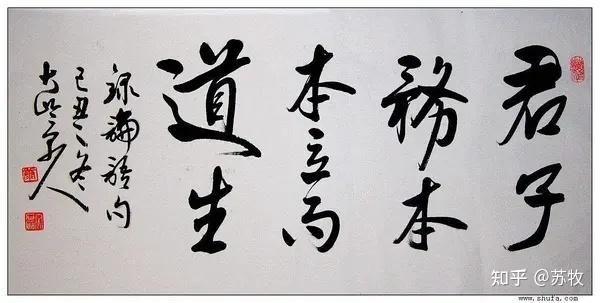 君子
務本
本立而
道生
錄論語句
己丑之冬
知乎 @苏牧
www.shufa.com